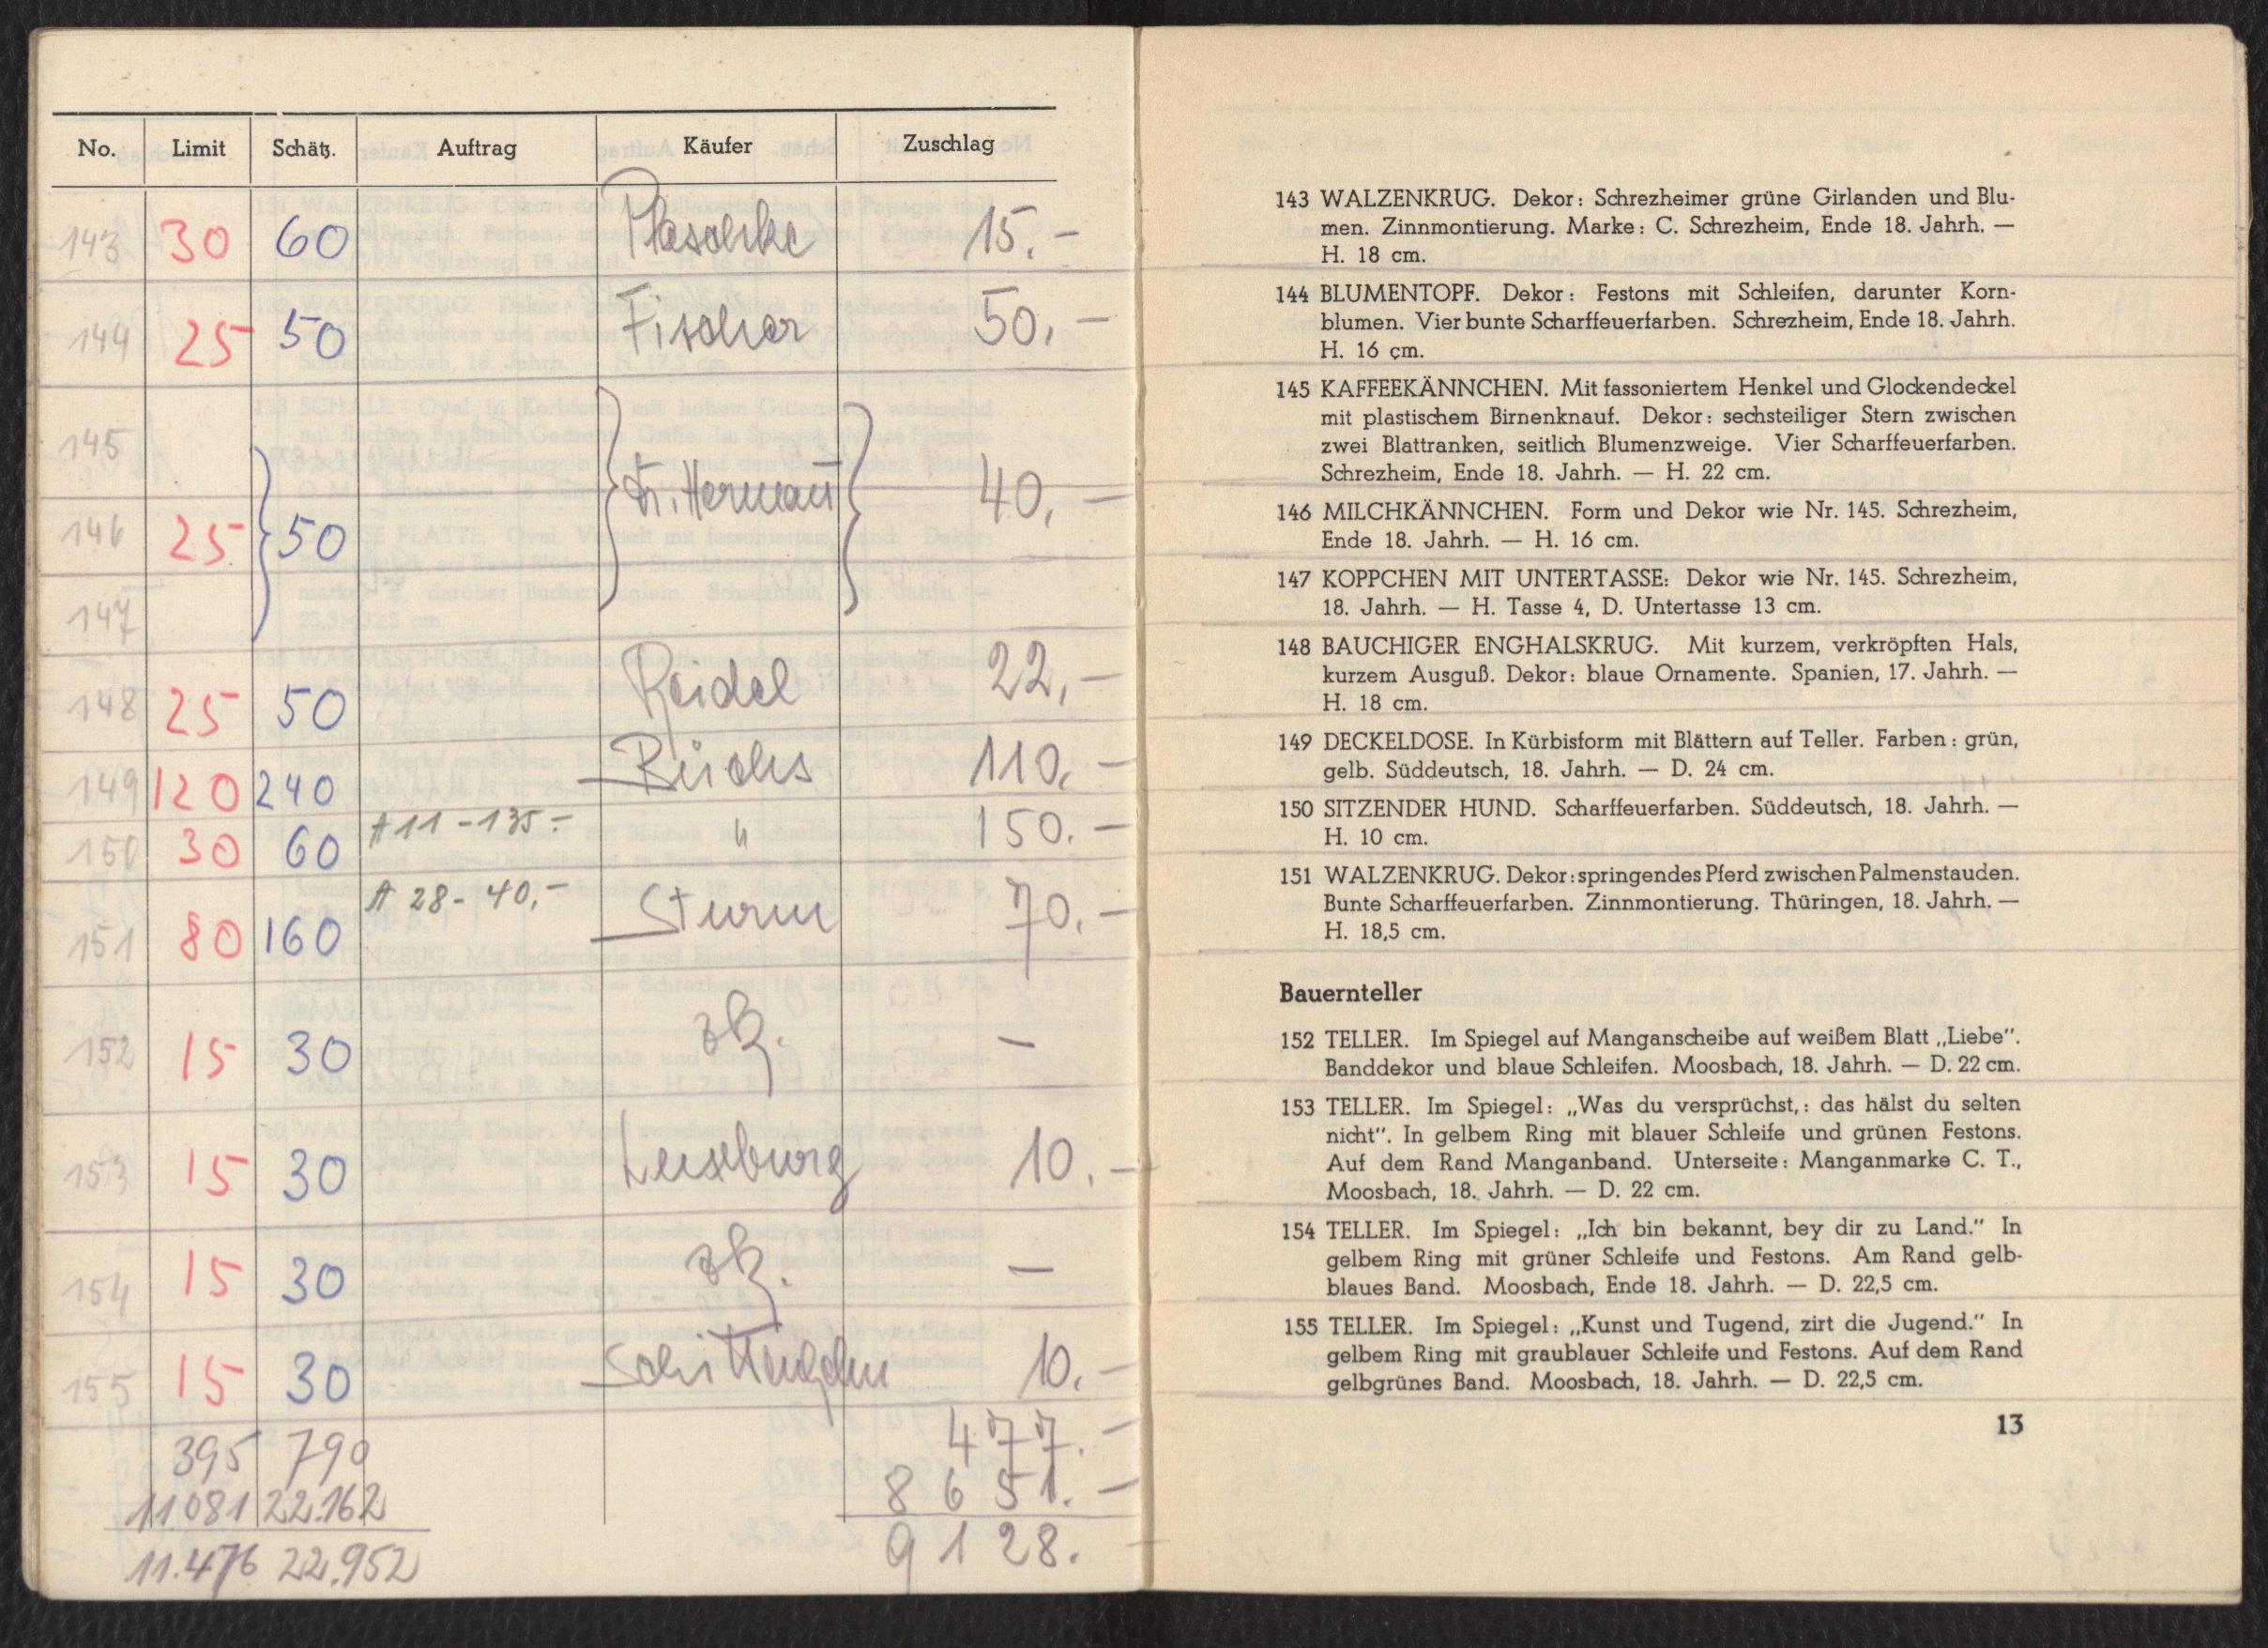 No. Limit Schätz. Auftrag Käufer Zuschlag
143 30 60 15.-
144 25 50 Fischer 50.-
145
146 25 50 Fr. Hermann 40.-
147
148 25 50 Reidel 22.-
149 120 240 110.-
150 30 60 A 11 - 135.- " 150.-
151 80 160 A 28 - 40.- Sturm 70.-
152 15 30 —
153 15 30 10.-
154 15 30 —
155 15 30 10.-
395 790 477.-
11.081 22.162 8651.-
11.476 22.952 9128.-
143 WALZENKRUG. Dekor: Schrezheimer grüne Girlanden und Blu-
men. Zinnmontierung. Marke: C. Schrezheim, Ende 18. Jahrh. —
H. 18 cm.
144 BLUMENTOPF. Dekor: Festons mit Schleifen, darunter Korn-
blumen. Vier bunte Scharffeuerfarben. Schrezheim, Ende 18. Jahrh.
H. 16 cm.
145 KAFFEEKÄNNCHEN. Mit fassoniertem Henkel und Glockendeckel
mit plastischem Birnenknauf. Dekor: sechsteiliger Stern zwischen
zwei Blattranken, seitlich Blumenzweige. Vier Scharffeuerfarben.
Schrezheim, Ende 18. Jahrh. — H. 22 cm.
146 MILCHKÄNNCHEN. Form und Dekor wie Nr. 145. Schrezheim,
Ende 18. Jahrh. — H. 16 cm.
147 KOPPCHEN MIT UNTERTASSE: Dekor wie Nr. 145. Schrezheim,
18. Jahrh. — H. Tasse 4, D. Untertasse 13 cm.
148 BAUCHIGER ENGHALSKRUG. Mit kurzem, verkröpften Hals,
kurzem Ausguß. Dekor: blaue Ornamente. Spanien, 17. Jahrh. —
H. 18 cm.
149 DECKELDOSE. In Kürbisform mit Blättern auf Teller. Farben: grün,
gelb. Süddeutsch, 18. Jahrh. — D. 24 cm.
150 SITZENDER HUND. Scharffeuerfarben. Süddeutsch, 18. Jahrh. —
H. 10 cm.
151 WALZENKRUG. Dekor: springendes Pferd zwischen Palmenstauden.
Bunte Scharffeuerfarben. Zinnmontierung. Thüringen, 18. Jahrh. —
H. 18,5 cm.
Bauernteller
152 TELLER. Im Spiegel auf Manganscheibe auf weißem Blatt „Liebe“.
Banddekor und blaue Schleifen. Moosbach, 18. Jahrh. — D. 22 cm.
153 TELLER. Im Spiegel: „Was du versprüchst,: das hälst du selten
nicht“. In gelbem Ring mit blauer Schleife und grünen Festons.
Auf dem Rand Manganband. Unterseite: Manganmarke C. T.,
Moosbach, 18. Jahrh. — D. 22 cm.
154 TELLER. Im Spiegel: „Ich bin bekannt, bey dir zu Land.“ In
gelbem Ring mit grüner Schleife und Festons. Am Rand gelb-
blaues Band. Moosbach, Ende 18. Jahrh. — D. 22,5 cm.
155 TELLER. Im Spiegel: „Kunst und Tugend, zirt die Jugend.“ In
gelbem Ring mit graublauer Schleife und Festons. Auf dem Rand
gelbgrünes Band. Moosbach, 18. Jahrh. — D. 22,5 cm.
13